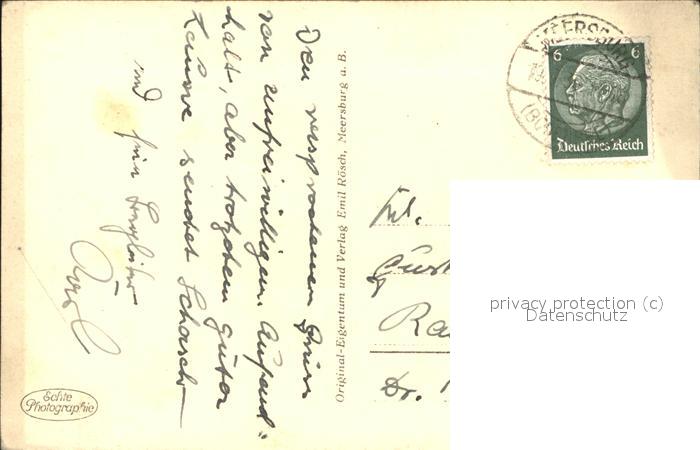 Den versprochenen Gruss
von unfreiwilligem Aufent-
halt, aber trotzdem guter
Laune sendet
und sein Begleiter
Original-Eigentum und Verlag Emil Rösch, Meersburg a. B.
Echte
Photographie
MEERSBURG
6 6
Deutsches Reich
Frl.
Dr.
privacy protection (c)
Datenschutz